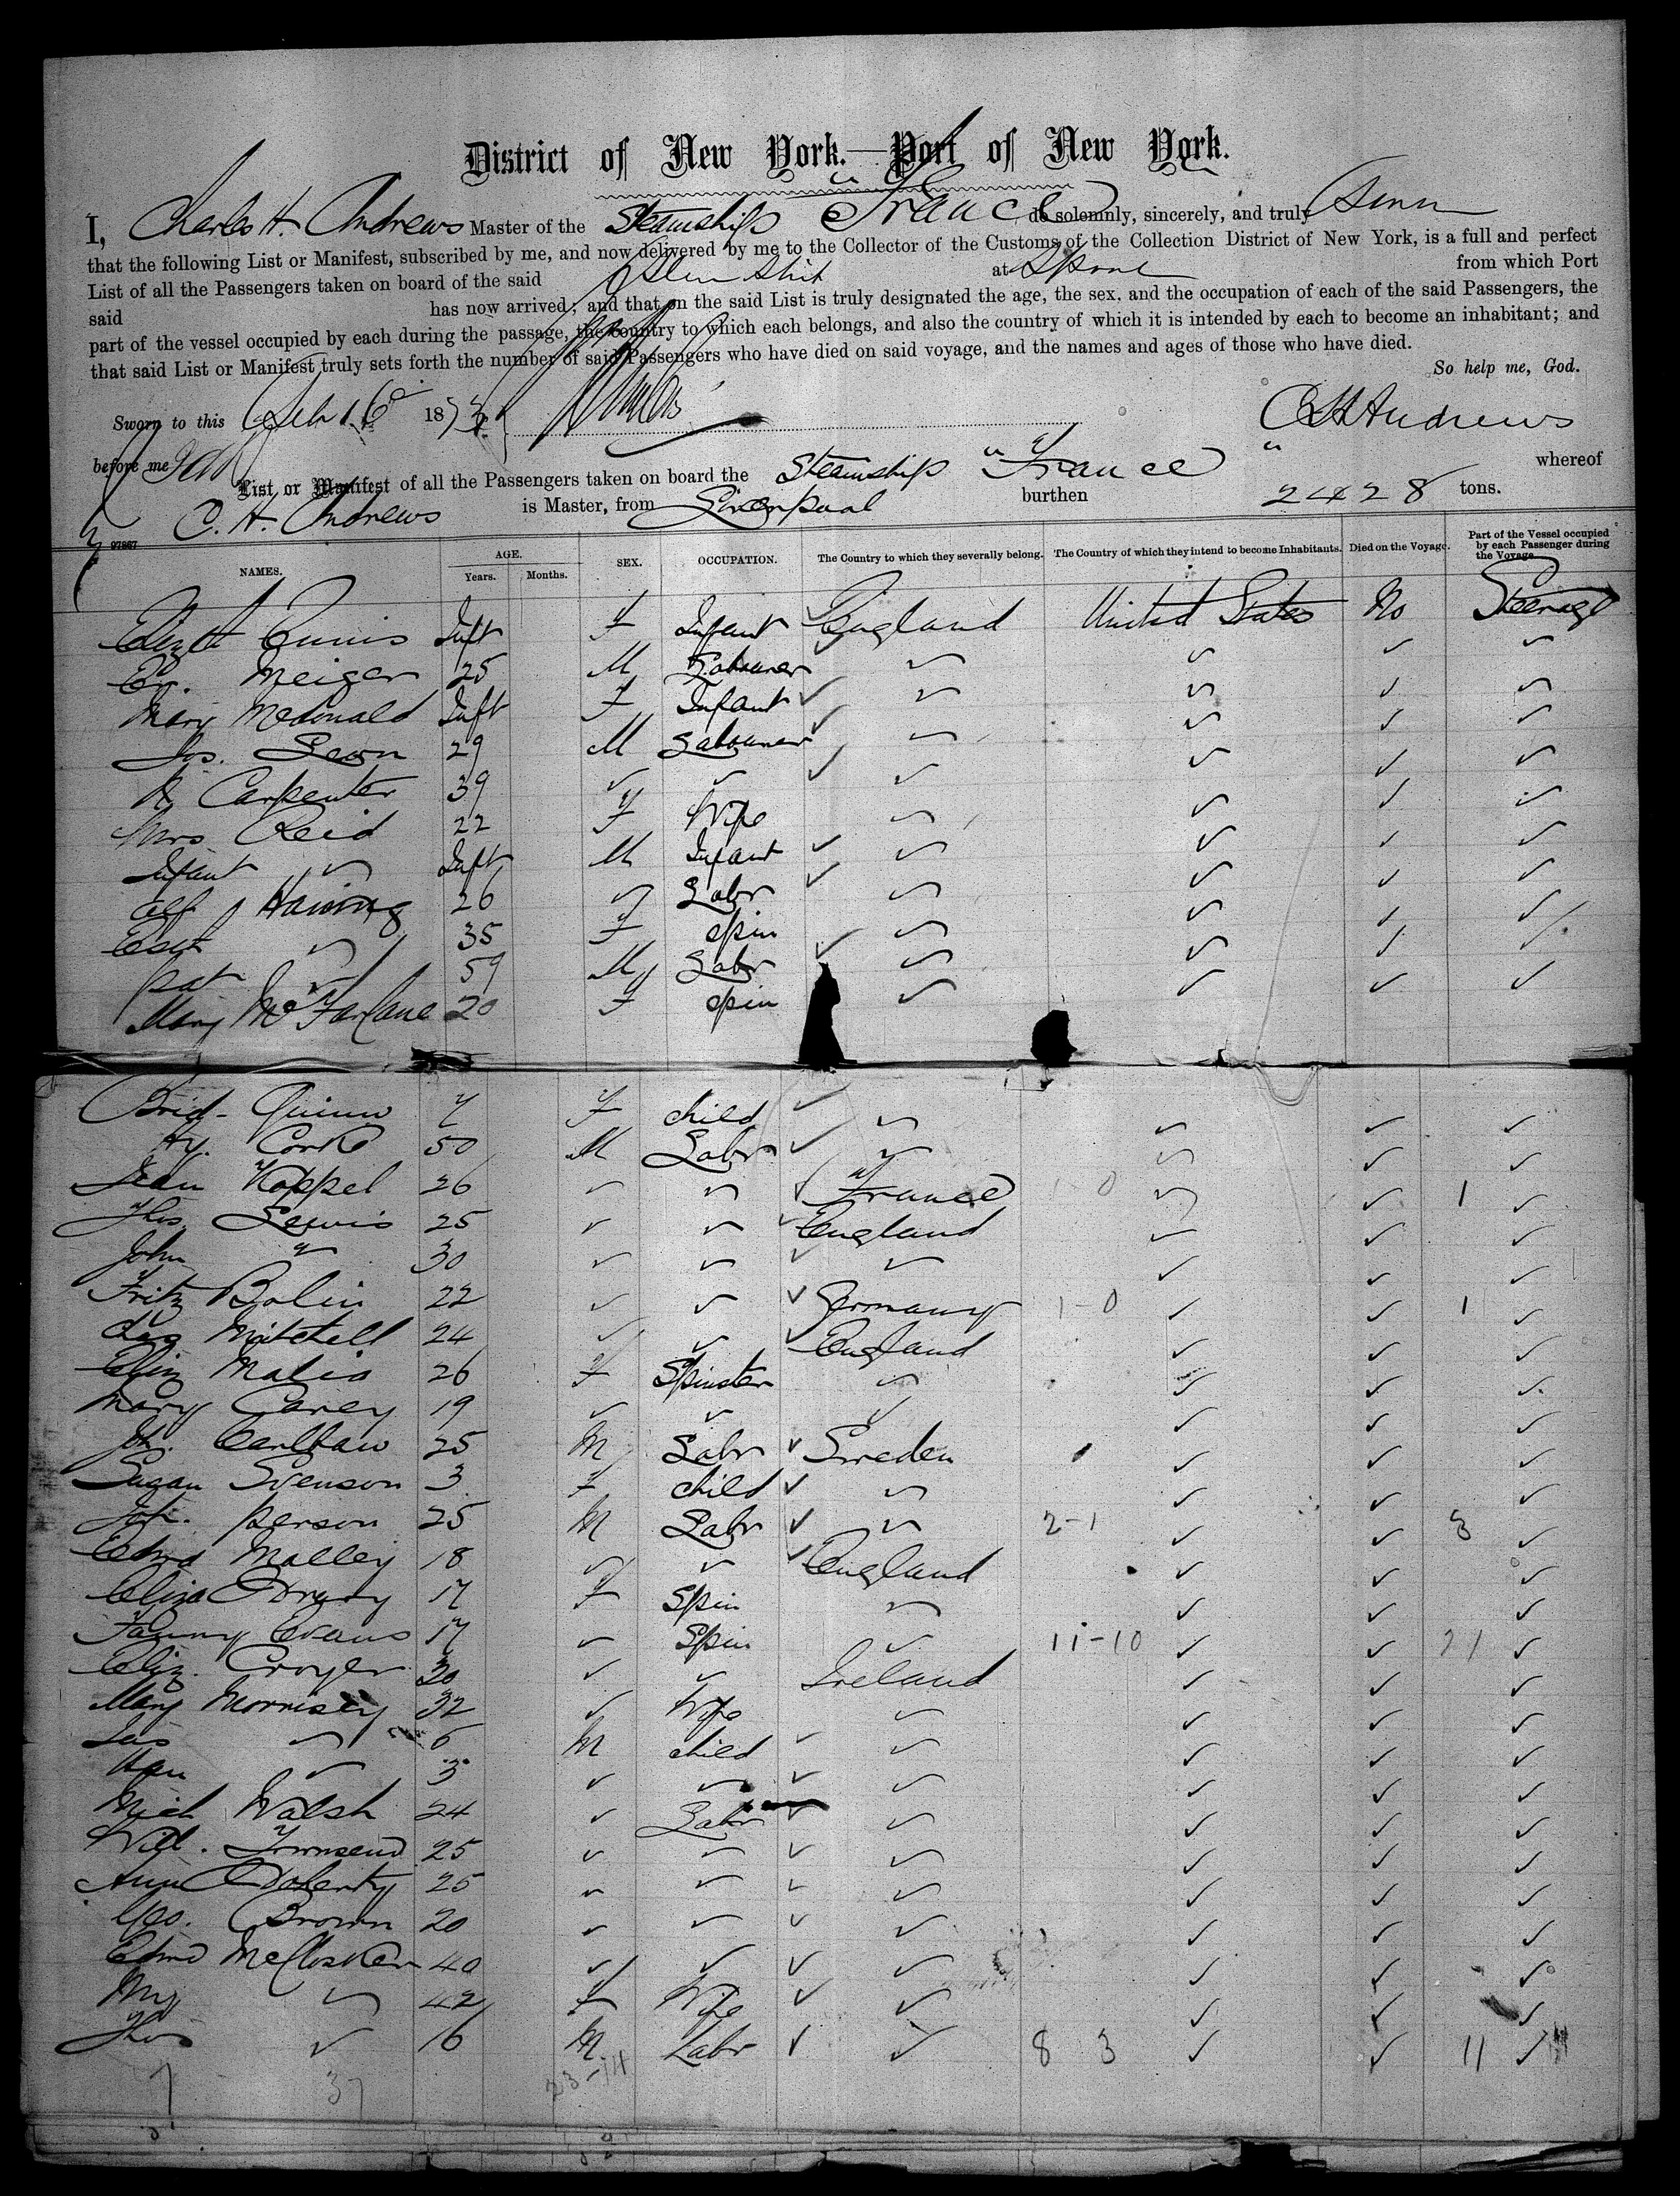 District of New York.—Port of New York.
I, Charles H. Andrews Master of the Steamship "France" do solemnly, sincerely, and truly
that the following List or Manifest, subscribed by me, and now delivered by me to the Collector of the Customs of the Collection District of New York, is a full and perfect
List of all the Passengers taken on board of the said at L'pool from which Port
said has now arrived; and that on the said List is truly designated the age, the sex, and the occupation of each of the said Passengers, the
part of the vessel occupied by each during the passage, the country to which each belongs, and also the country of which it is intended by each to become an inhabitant; and
that said List or Manifest truly sets forth the number of said Passengers who have died on said voyage, and the names and ages of those who have died.
So help me, God.
Sworn to this 16 1873 CH Andrews
before me
List or Manifest of all the Passengers taken on board the Steamship "France" whereof
C. H. Andrews is Master, from Liverpool burthen 2428 tons.
97867
NAMES. AGE. Years. Months. SEX. OCCUPATION. The Country to which they severally belong. The Country of which they intend to become Inhabitants. Died on the Voyage. Part of the Vessel occupied by each Passenger during the Voyage.
Inft F Infant ✓ England United States No Steerage
Meiger 25 M Labourer
Mary McDonald Inft F Infant ✓
Jos. 29 M Labourer ✓
Carpenter 39 ✓
Mrs Reid 22 F Wife
Infant " Inft M Infant ✓
Alf 26 " Labr ✓
" 35 F Spin
Pat " 59 M Labr ✓
Mary McFarlane 20 F Spin
Brid- Quinn 7 F child ✓
Hy. Cork 50 M Labr ✓
Jean Koppel 26 " " ✓ France 1-0 1
Thos Lewis 25 " " ✓ England
John " 30 " " ✓
Fritz Bolin 22 " " ✓ Germany 1-0 1
Mitchell 24 " " ✓ England
Eliz Malia 26 F Spinster
Mary Carey 19 " "
Joh. 25 M Labr ✓ Sweden
Susan Svenson 3 F child ✓
Joh. Person 25 M Labr ✓ 2-1 3
Edwd Malley 18 " " ✓ England
Eliza Drury 17 F Spin
Fanny Evans 17 " Spin 11-10 21
Eliz. Croyer 20 " " Ireland
Mary Morrisey 32 " Wife
Jas " 6 M child ✓
" 3 " " ✓
Mich Walsh 24 " Labr ✓
Will. Townsend 25 " " ✓
Ann Doherty 25 " " ✓
Geo. Brown 20 " " ✓
Edwd McClosker 40 " " ✓
My " 42 F Wife ✓
Thos " 16 M Labr ✓ 8 3 11
37 23-14